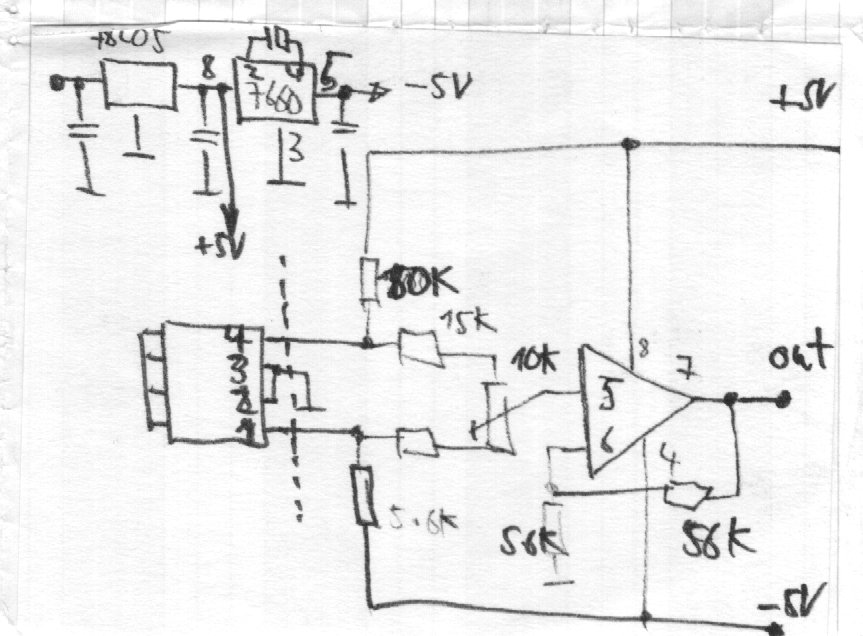 78L05
8
2
4
5
7660
-5V
3
+5V
+5V
80K
15K
4
3
2
1
10K
8
7
out
5
6
4
5.6K
56K
56K
-5V